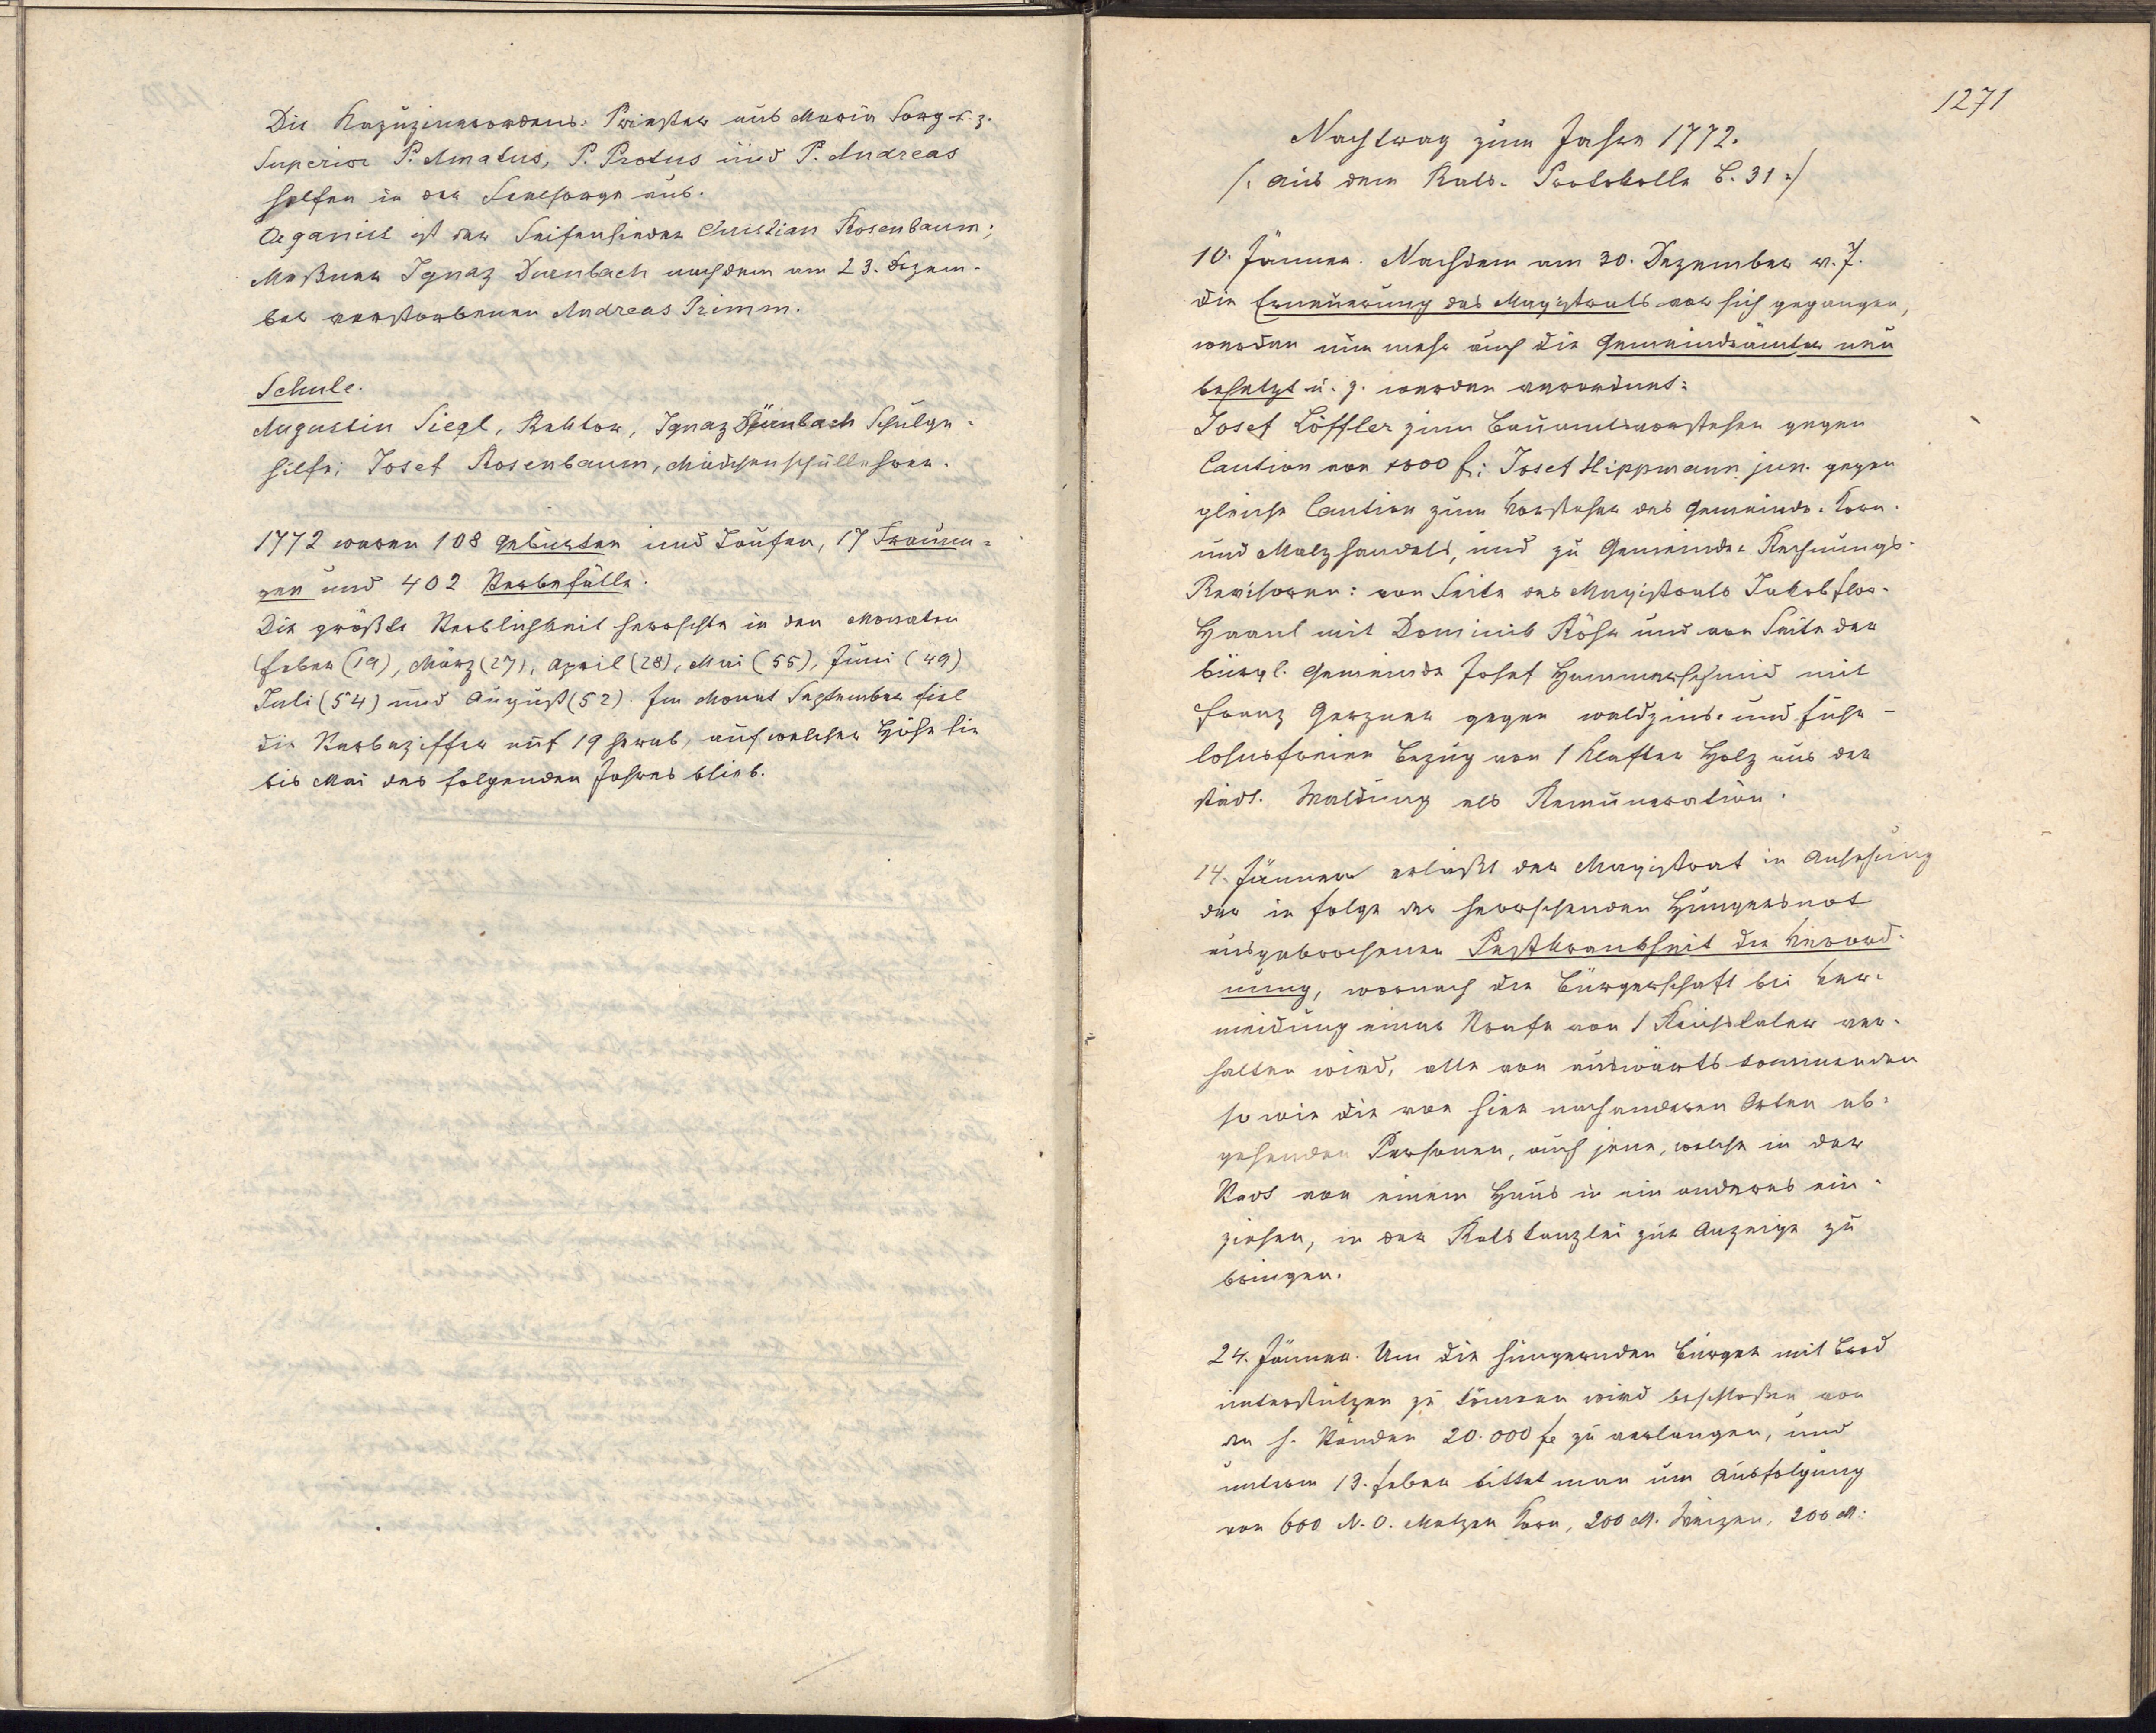 Die Kapuzinerordens-Priester aus Maria Sorg d. z.
Superior P. Amatus, P. Protus und P. Andreas
helfen in der Seelsorge aus.
Organist ist der Seifensieder Christian Rosenbaum;
Meßner Ignaz Dürnbach nach dem am 23. Dezem-
ber verstorbenen Andreas Primm.
Schule.
Augustin Siegl, Rektor, Ignaz Dürnbach Schulge-
hilfe; Josef Rosenbaum, Mädchenschullehrer.
1772 waren 108 Geburten und Taufen, 17 Trauun-
gen und 402 Sterbefälle.
Die größte Sterblichkeit herrschte in den Monaten
Feber (19), März (27), April (28), Mai (55), Juni (49)
Juli (54) und August (52). Im Monat September fiel
die Sterbeziffer auf 19 herab, auf welcher Höhe sie
bis Mai des folgenden Jahres blieb.
1271
Nachtrag zum Jahre 1772.
/: aus dem Rats-Protokolle B. 31 :/
10. Jänner. Nachdem am 30. Dezember v. J.
die Erneuerung des Magistrats vor sich gegangen,
werden nunmehr auch die Gemeindeämter neu
besetzt u. z. werden verordnet:
Josef Löffler zum Bauamtsvorsteher gegen
Caution von 1000 fl; Josef Hippmann jun. gegen
gleiche Caution zum Vorsteher des Gemeinde-Korn-
und Malzhandels, und zu Gemeinde-Rechnungs-
Revisoren: von Seite des Magistrats Jakob Flor.
Haanl mit Dominik Röhr und von Seite der
bürgl. Gemeinde Josef Hammerschmid mit
Franz Gerzner gegen waldzins- und fuhr-
lohnsfreien Bezug von 1 Klafter Holz aus der
städt. Waldung als Remuneration.
14. Jänner erläßt der Magistrat in Ansehung
der in folge der herrschenden Hungersnot
ausgebrochenen Pestkrankheit die Verord-
nung, wornach die Bürgerschaft bei Ver-
meidung einer Strafe von 1 Reichstaler ver-
halten wird, alle von auswärts kommenden
so wie die von hier nach anderen Orten ab-
gehenden Personen, auch jene, welche in der
Stadt von einem Haus in ein anderes ein-
ziehen, in der Ratskanzlei zur Anzeige zu
bringen.
24. Jänner. Um die hungernden Bürger mit Brod
unterstützen zu können wird beschloßen von
den h. Ständen 20.000 fl zu verlangen, und
unterm 13. Feber bittet man um Ausfolgung
von 600 N. O. Metzen Korn, 200 M. Weizen, 200 M: